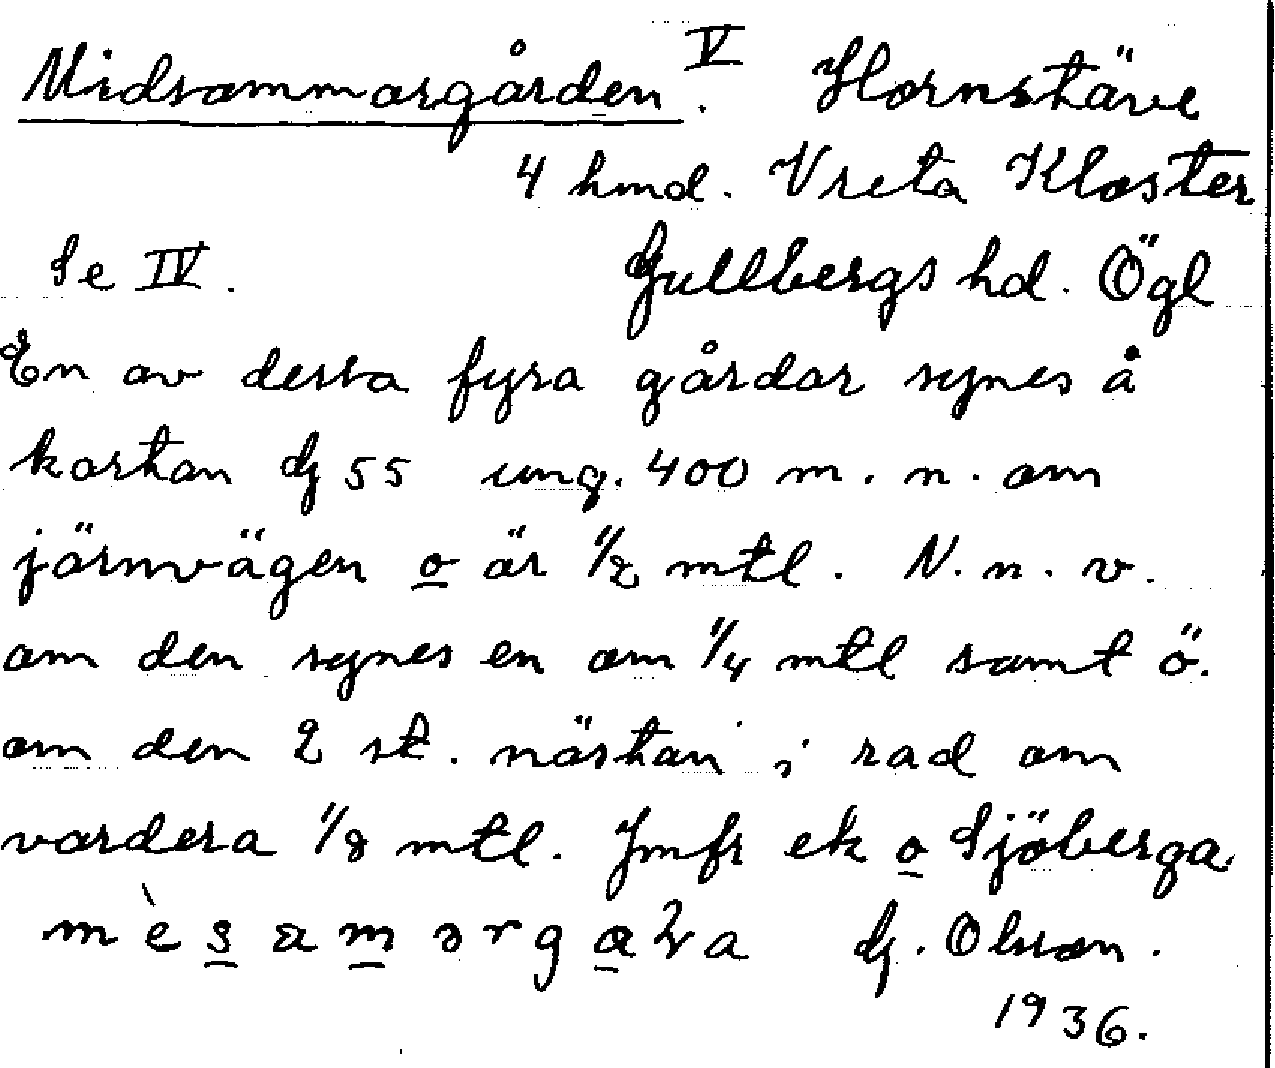 Midsommargården V. Hornstäve
4 hmd. Vreta Kloster
Se IV. Gullbergs hd. Ögl
En av dessa fyra gårdar synes å
kartan G 55 ung. 400 m. n. om
järnvägen o är 1/2 mtl. N. n. v.
om den synes en om 1/4 mtl samt ö.
om den 2 st. nästan i rad om
vardera 1/8 mtl. Jmfr ek o Sjöberga
G. Olsson.
1936.